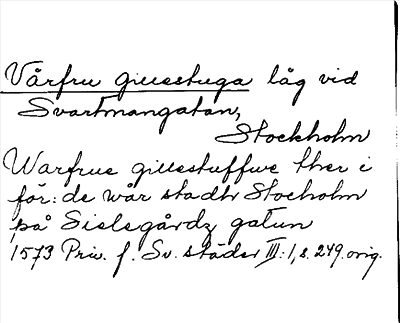 Vårfru gillestuga låg vid
Svartmangatan,
Stockholm
Warfrue gillestuffwe ther i
för: de wår stadh Stocholm
på Sielegårdz gatun
1573 Priv. f. Sv. städer III:1, s. 249. orig.